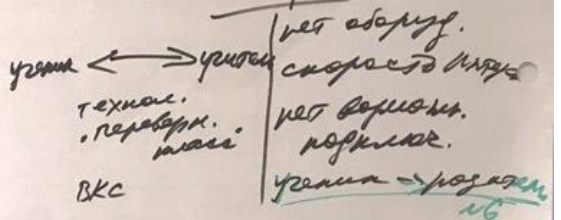 ученик <-> учитель
технол.
"переверн.
класс"
ВКС
нет оборуд.
скорость Инт
нет возможн.
подключ.
ученик -> родитель